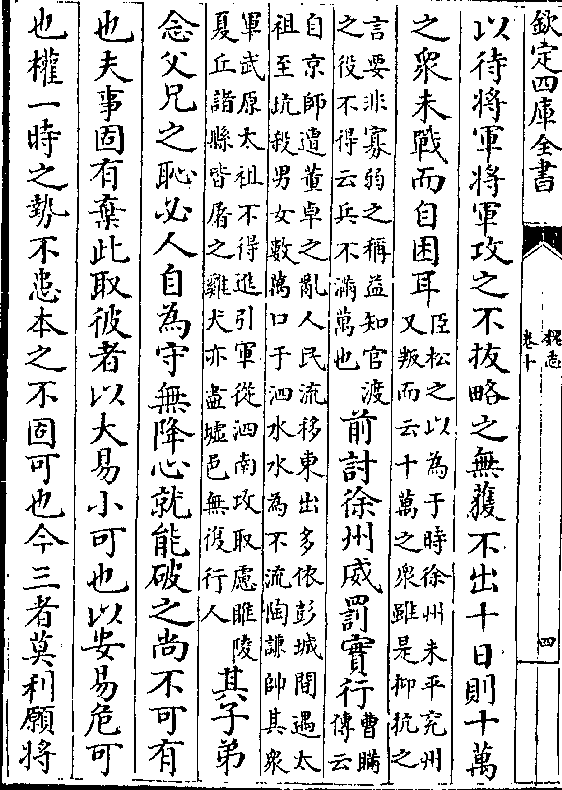 欽定四庫全書
魏志
卷十
四
以待將軍將軍攻之不拔略之無獲不出十日則十萬
之衆未戰而自困耳
臣松之以為于時徐州未平兖州
又叛而云十萬之衆雖是抑抗之
言要非寡弱之稱益知官渡
之役不得云兵不滿萬也
前討徐州威罰實行
曹瞞
傳云
自京師遭董卓之亂人民流移東出多依彭城間遇太
祖至坑殺男女數萬口于泗水水為不流陶謙帥其衆
軍武原太祖不得進引軍從泗南攻取慮睢陵
夏丘諸縣皆屠之雞犬亦盡墟邑無復行人
其子弟
念父兄之恥必人自為守無降心就能破之尚不可有
也夫事固有棄此取彼者以大易小可也以安易危可
也權一時之勢不患本之不固可也今三者莫利願將